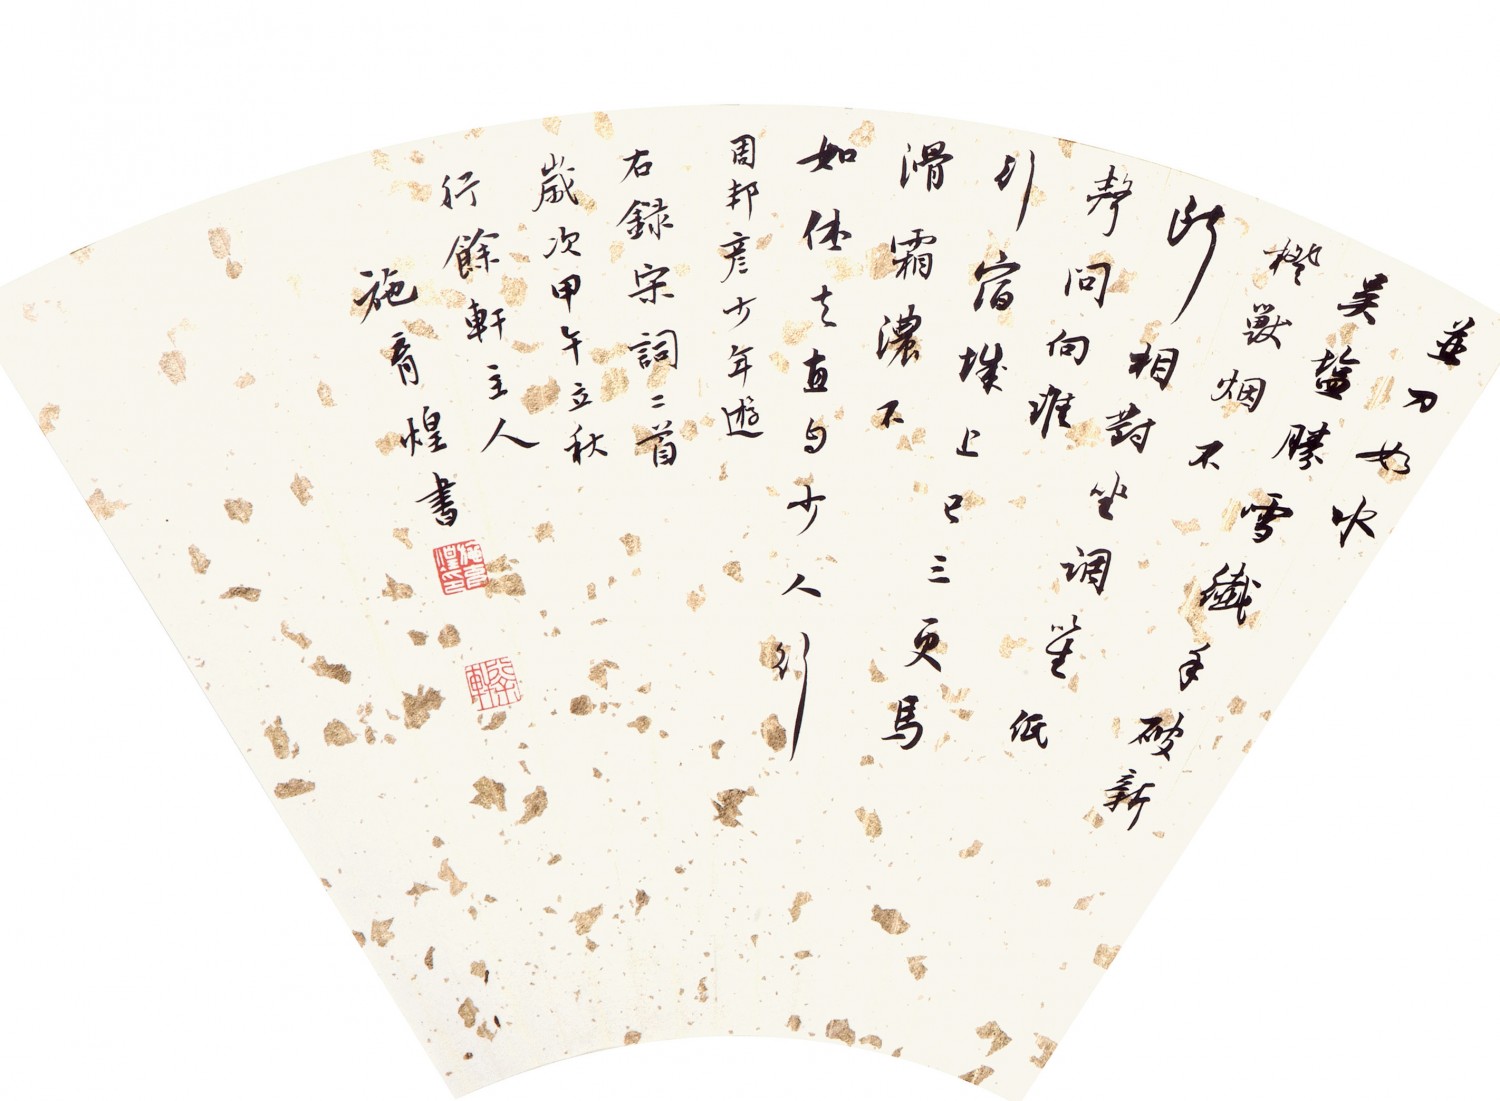 並刀如水
吳塩勝雪纖手破新
橙獸烟不
断相對坐調笙低
聲問向誰
行宿城上已三更馬
滑霜濃不
如休去直是少人行
周邦彦少年遊
右録宋詞二首
歲次甲午立秋
行餘軒主人
施育煌書
施育煌印